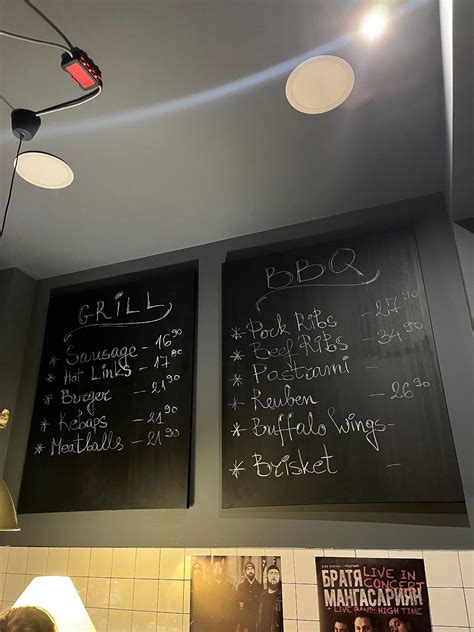 GRILL
* Sausage - 16.90
* Hot Links - 17.80
* Burger - 21.90
* Kebaps - 21.90
* Meatballs - 21.90
BBQ
* Pork Ribs - 27.90
* Beef Ribs - 34.90
* Pastrami -
* Reuben - 26.90
* Buffalo Wings -
* Brisket -
БРАТЯ
МАНГАСАРИЯН
LIVE IN
CONCERT
+ LIVE BAND: HIGH TIME